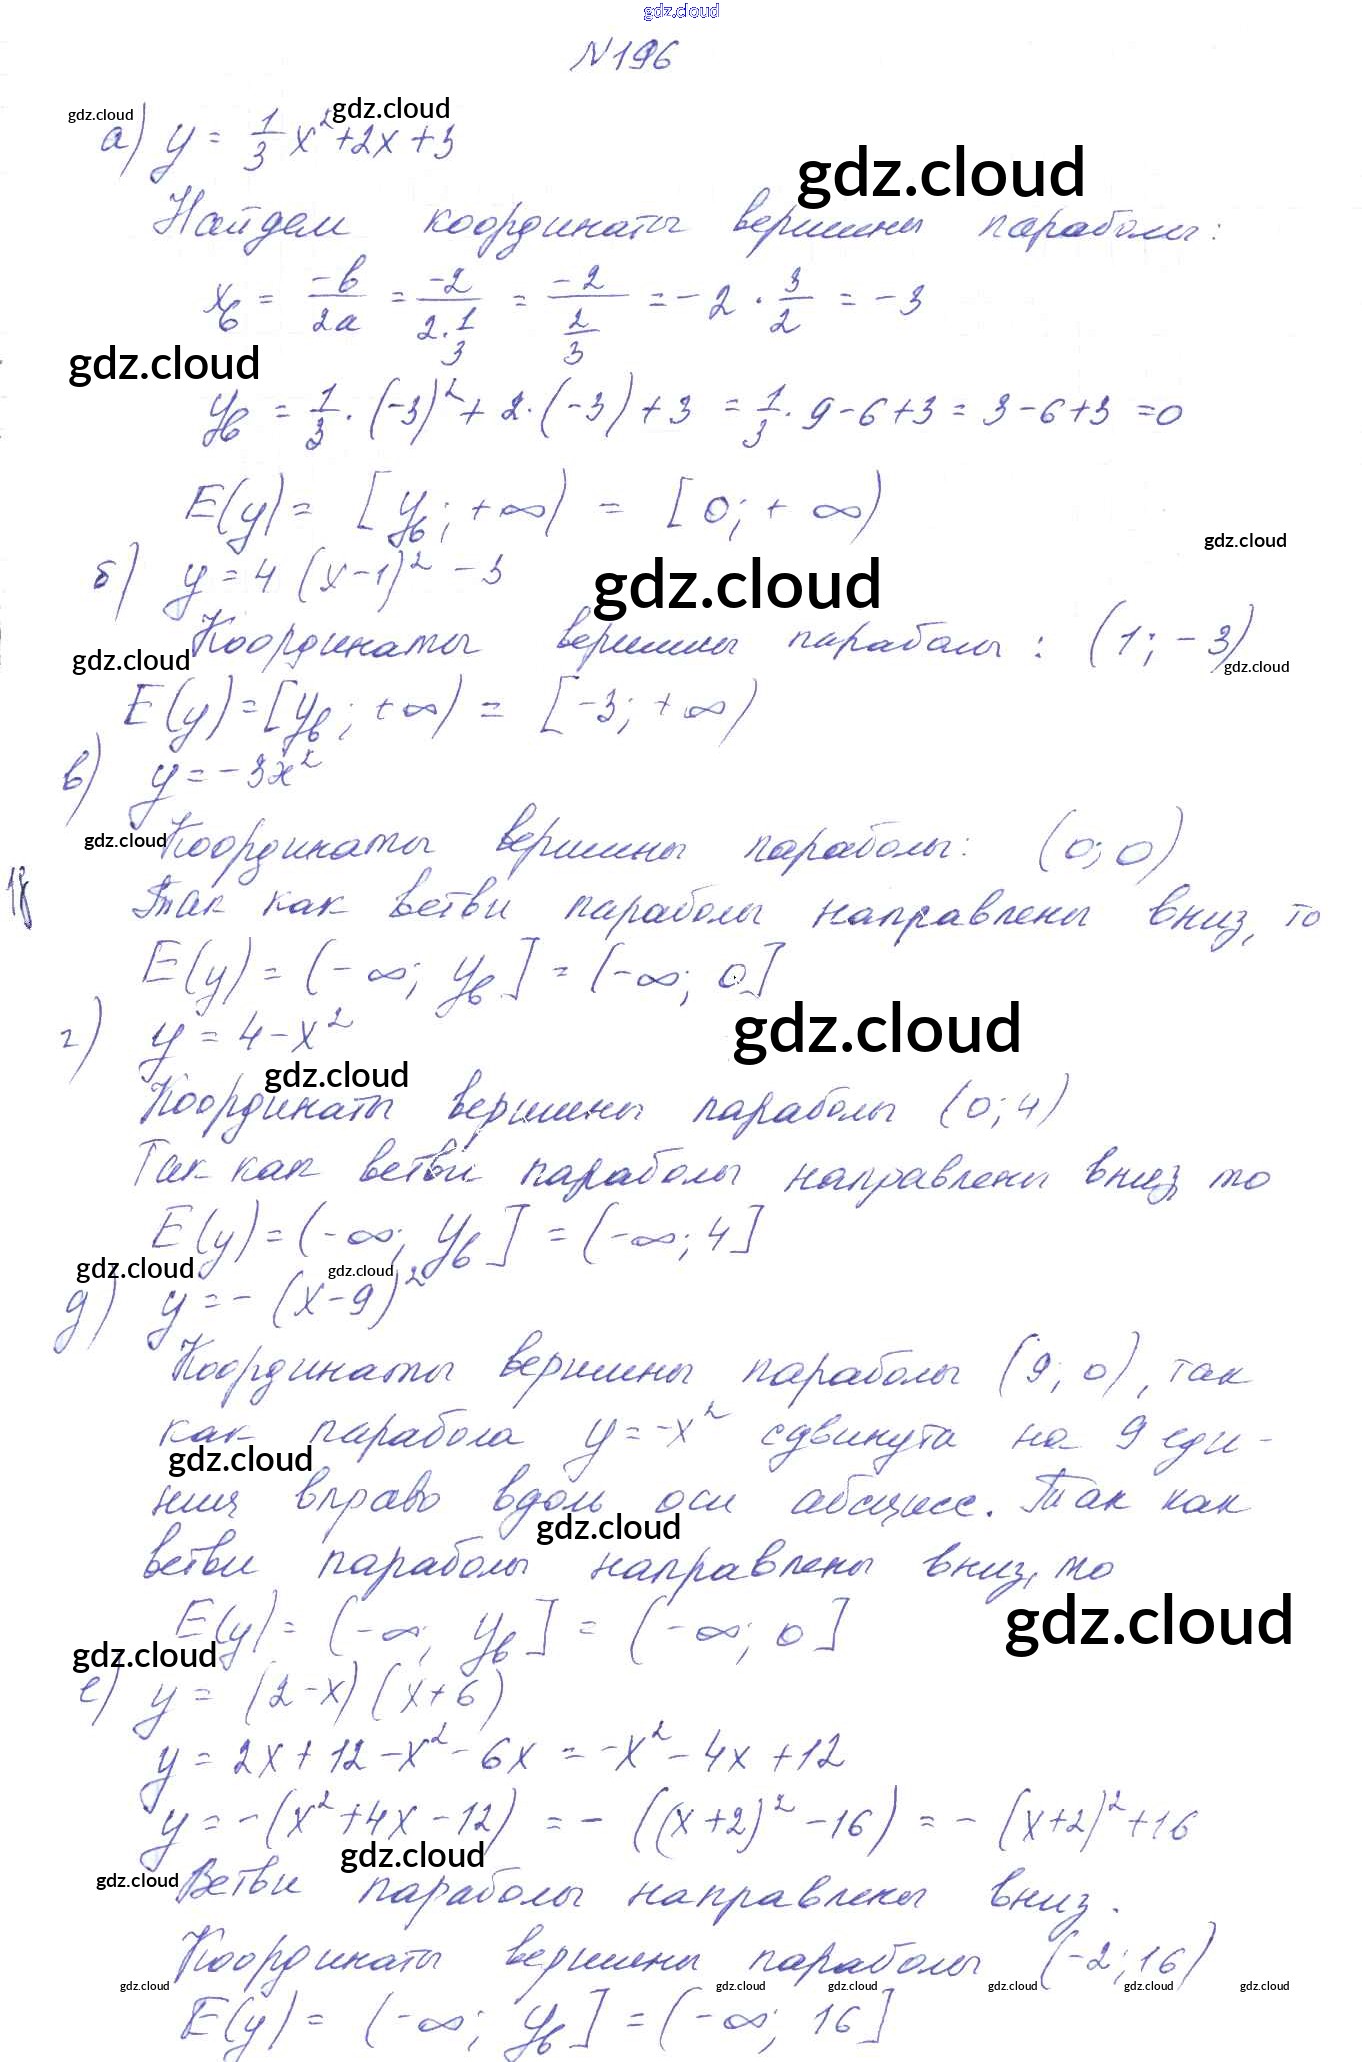 gdz.cloud
N196
gdz.cloud gdz.cloud
а) y = 1/3 x² + 2x + 3
gdz.cloud
Найдем координаты вершины параболы:
xв = -b/2a = -2/(2·1/3) = -2/(2/3) = -2 · 3/2 = -3
gdz.cloud
yв = 1/3 · (-3)² + 2·(-3) + 3 = 1/3 · 9 - 6 + 3 = 3 - 6 + 3 = 0
E(y) = [yв; +∞) = [0; +∞)
gdz.cloud
б) y = 4 (x-1)² - 3
gdz.cloud
Координаты вершины параболы: (1; -3)
gdz.cloud gdz.cloud
E(y) = [yв; +∞) = [-3; +∞)
в) y = -3x²
gdz.cloud
Координаты вершины параболы: (0; 0)
18
Так как ветви параболы направлены вниз, то
E(y) = (-∞; yв] = (-∞; 0]
г) y = 4 - x²
gdz.cloud
gdz.cloud
Координаты вершины параболы (0; 4)
Так как ветви параболы направлены вниз, то
E(y) = (-∞; yв] = (-∞; 4]
gdz.cloud gdz.cloud
д) y = - (x-9)²
Координаты вершины параболы (9; 0), так
как парабола y = -x² сдвинута на 9 еди-
gdz.cloud
ниц вправо вдоль оси абсцисс. Так как
gdz.cloud
ветви параболы направлены вниз, то
gdz.cloud
E(y) = (-∞; yв] = (-∞; 0]
gdz.cloud
е) y = (2-x)(x+6)
y = 2x + 12 - x² - 6x = -x² - 4x + 12
y = -(x² + 4x - 12) = - ((x+2)² - 16) = - (x+2)² + 16
gdz.cloud
gdz.cloud
Ветви параболы направлены вниз.
Координаты вершины параболы (-2; 16)
gdz.cloud gdz.cloud gdz.cloud gdz.cloud gdz.cloud gdz.cloud
E(y) = (-∞; yв] = (-∞; 16]